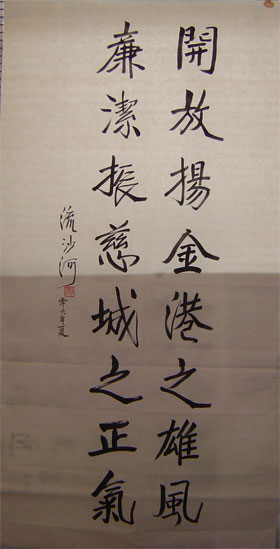 開放揚金港之雄風
廉潔振慈城之正氣
流沙河
零六年夏